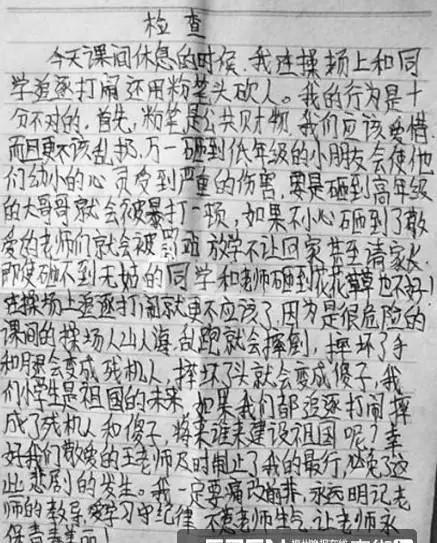 检 查
今天课间休息的时候,我连操场上和同
学追逐打闹还用粉笔头砍人。我的行为是十
分不对的,首先,粉笔是公共财物,我们应该爱惜
而且更不该乱扔,万一砸到低年级的小朋友会使他
们幼小的心灵受到严重的伤害,要是砸到高年级
的大哥哥就会被暴打一顿,如果不小心砸到了敬
爱的老师们就会被罚站 放学不让回家 甚至请家长
即使砸不到无辜的同学和老师砸到花花草草也不好!
连操场上追逐打闹就更不应该了,因为是很危险的
课间的操场人山人海,乱跑就会摔倒,摔坏了手
和腿会变成残机人,摔坏了头就会变成傻子,我
们小学生是祖国的未来,如果我们都追逐打闹摔
成了残机人和傻子,将来谁来建设祖国呢?幸
好我们敬爱的王老师及时制止了我的暴行,避免了这
些悲剧的发生。我一定要痛改前非,永远明记老
师的教导,爱学习守纪律 不惹老师生气,让老师永
保青春美丽!